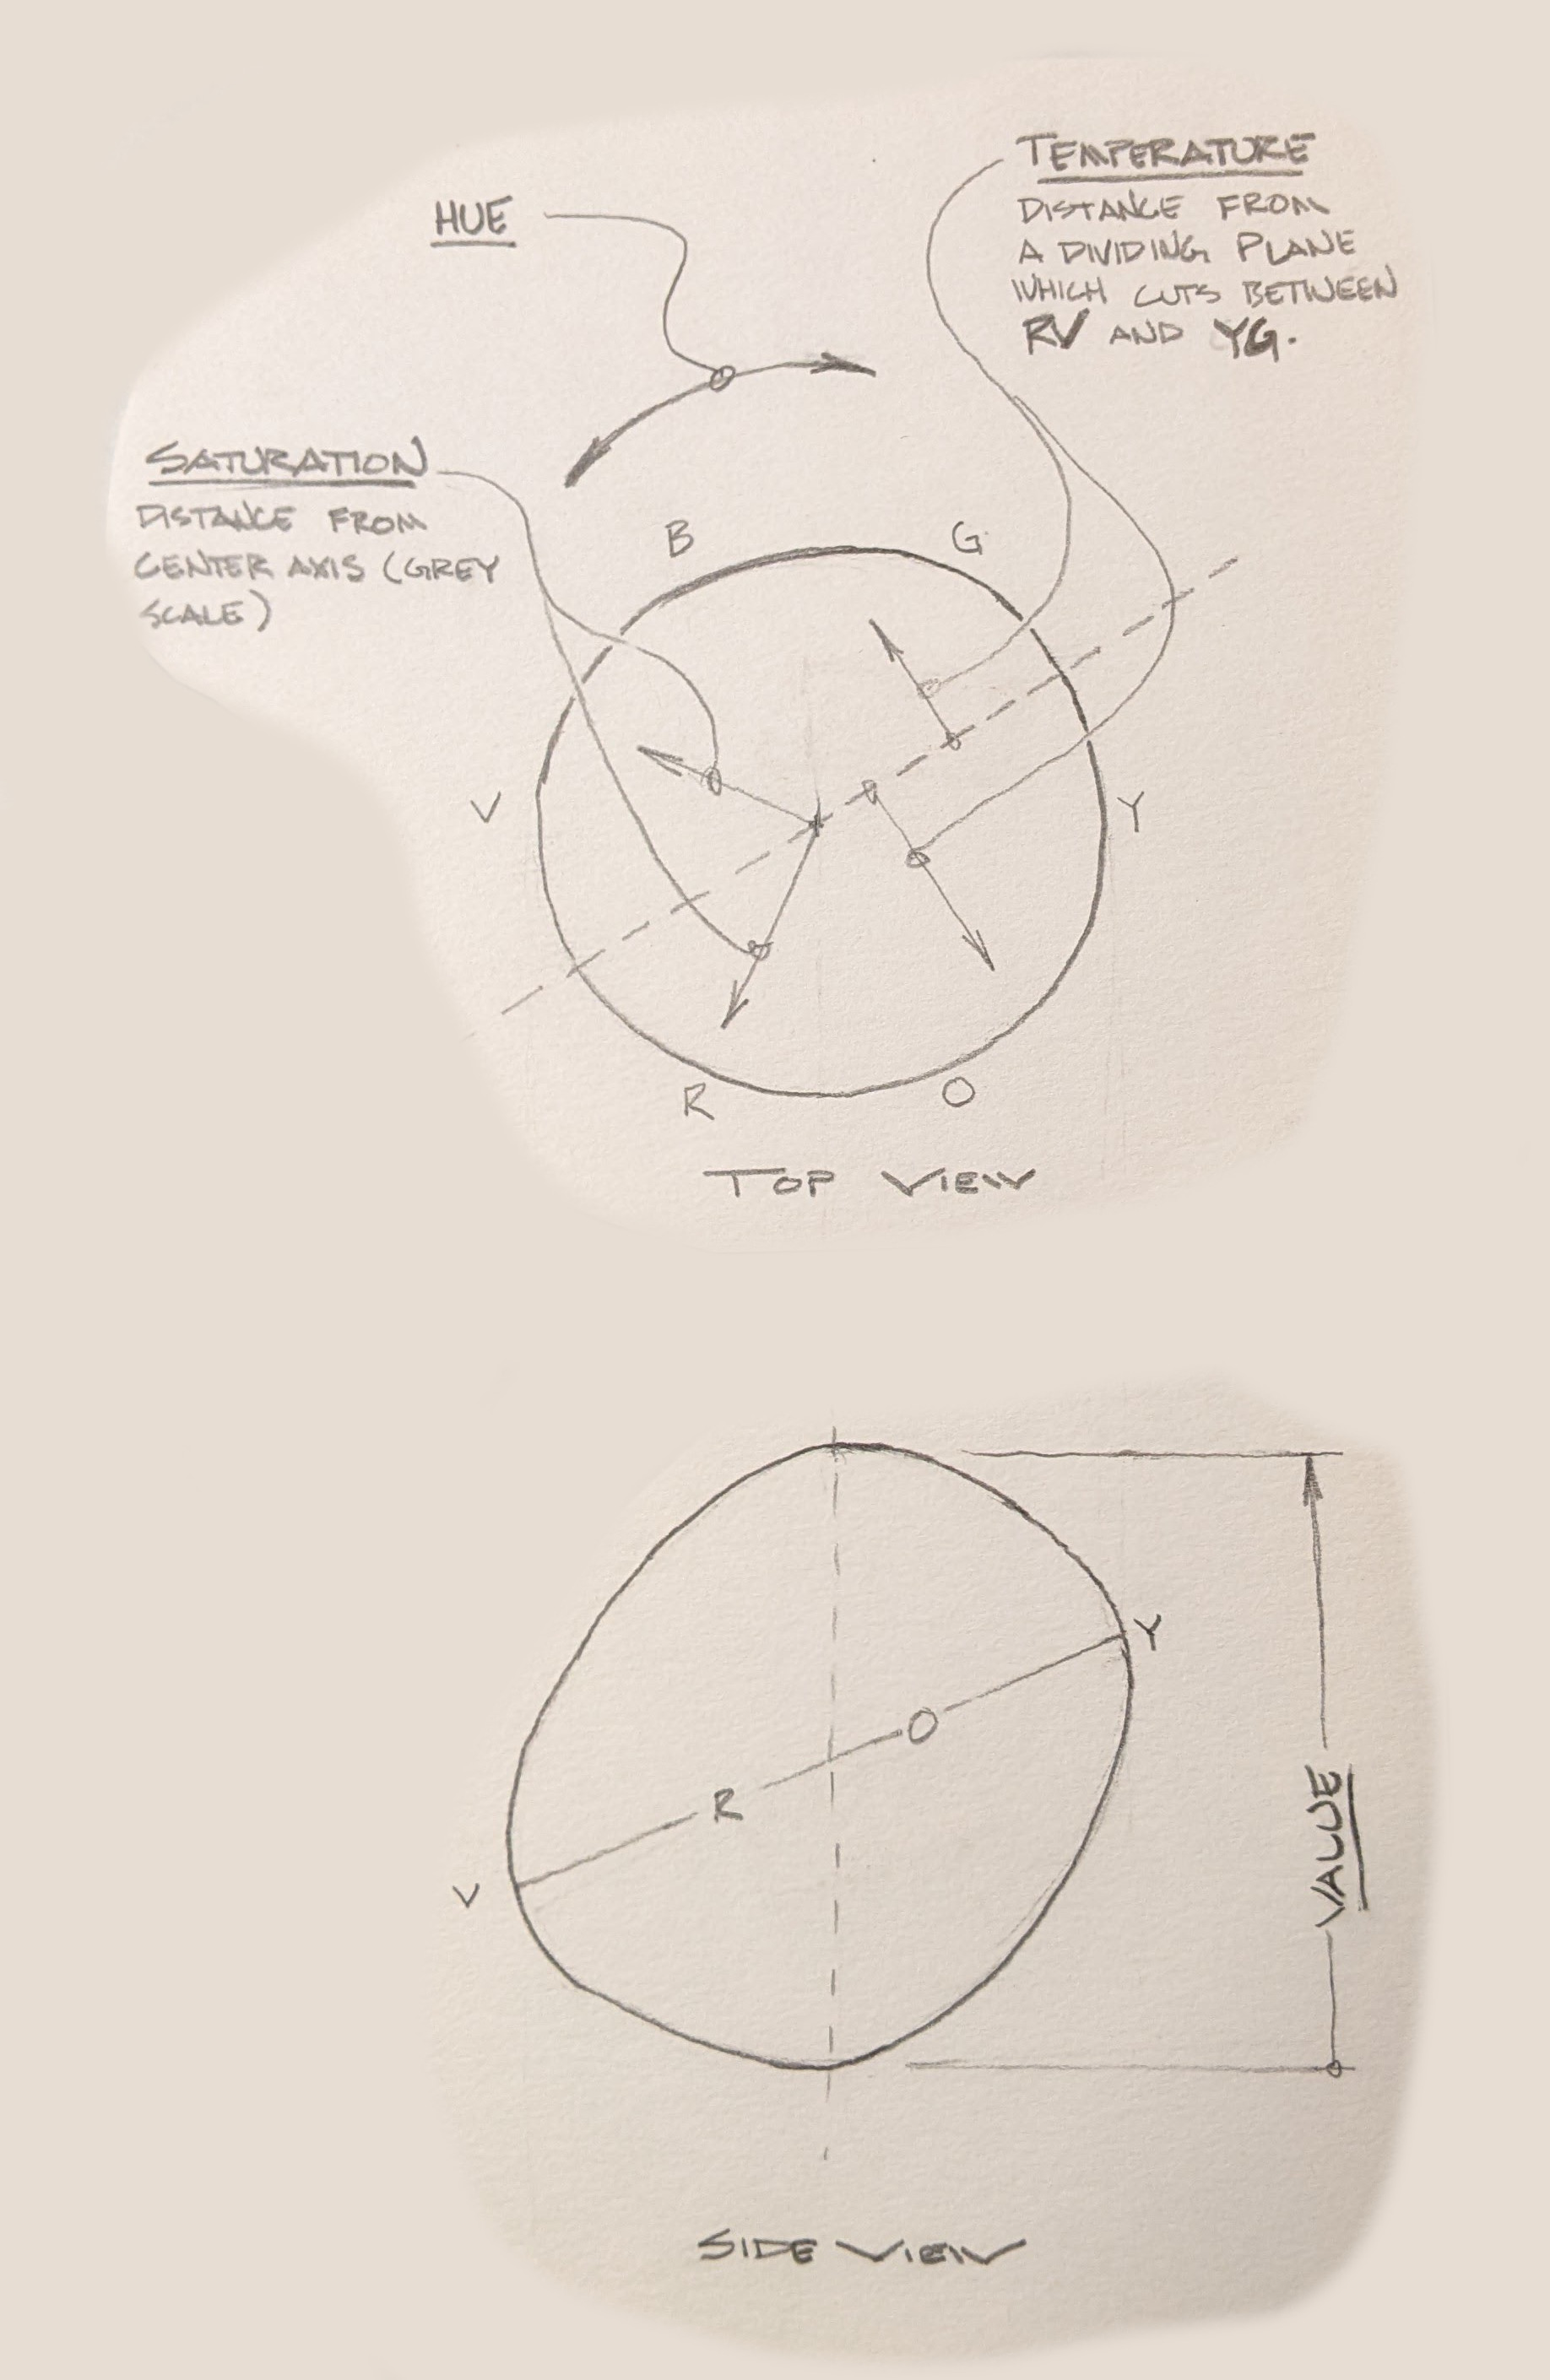 HUE
TEMPERATURE
DISTANCE FROM
A DIVIDING PLANE
WHICH CUTS BETWEEN
RV AND YG.
SATURATION
DISTANCE FROM
CENTER AXIS (GREY
SCALE)
B
G
V
Y
R
O
TOP VIEW
Y
O
R
V
VALUE
SIDE VIEW